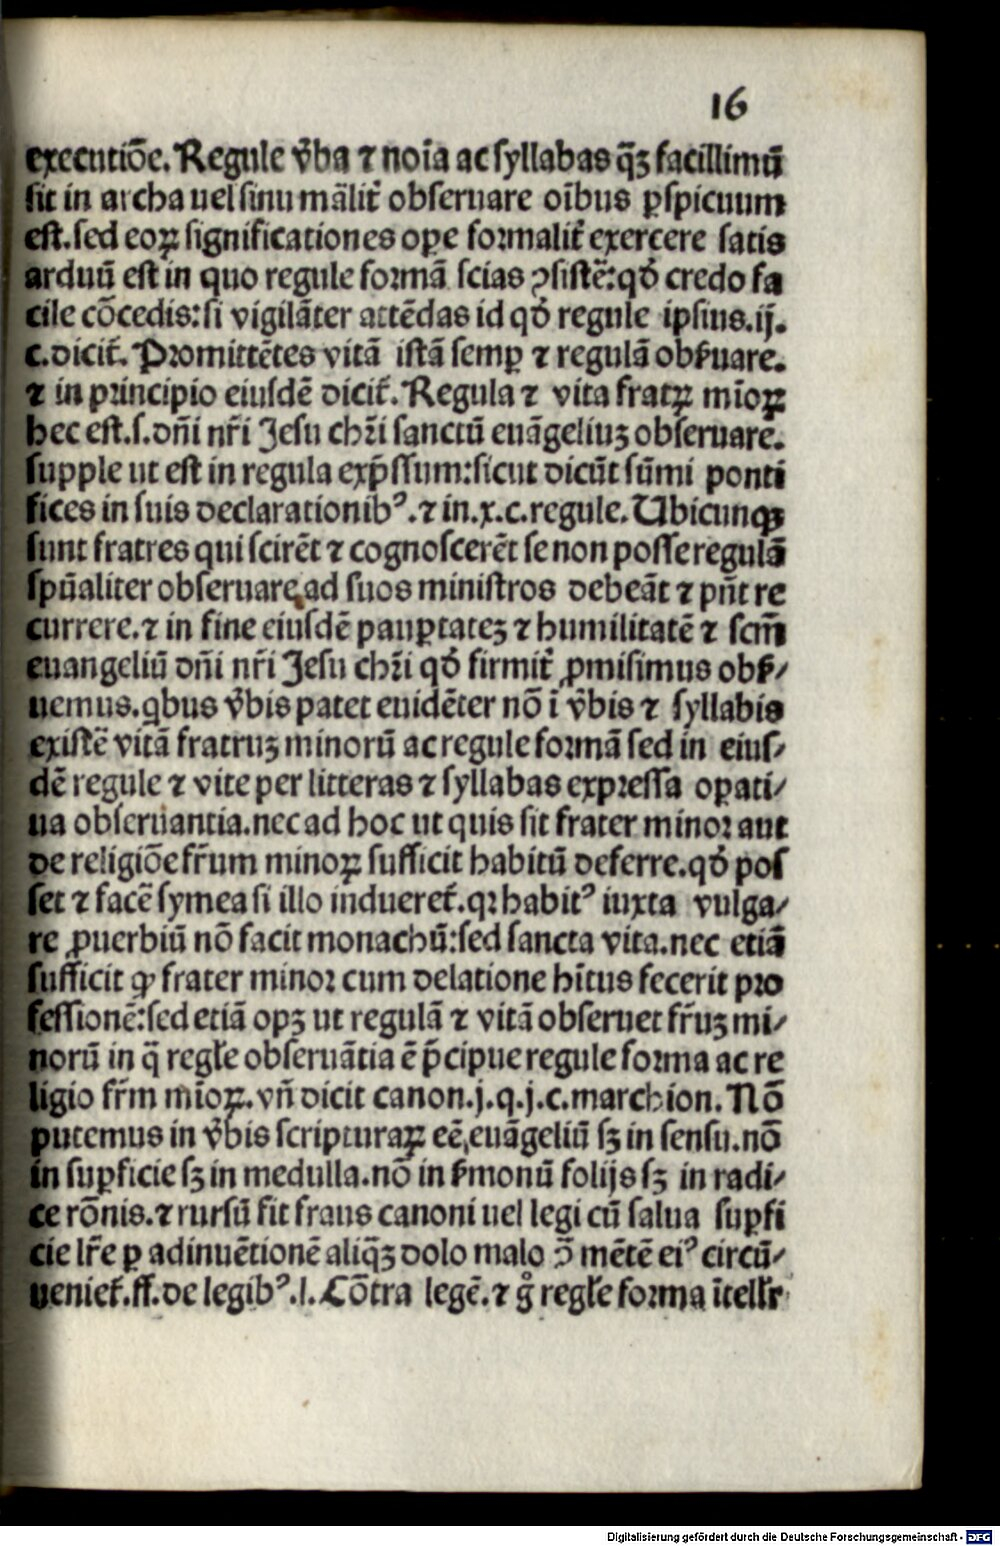 16
executiõe. Regule v̾ba ⁊ noi̅a ac syllabas q̄ꝫ facillimū
sit in archa uel sinu mālit᷑ obseruare oi̅bus ꝑspicuum
est. sed eoꝝ significationes oꝑe formalit᷑ exercere satis
arduū est in quo regule formā scias ꝯsistē: qð credo fa
cile cõcedis: si vigilāter attēdas id qð regule ipsius. ij.
c. dicit᷑. Promittētes vitā istā semꝑ ⁊ regulā obẜuare.
⁊ in principio eiusdē dicit᷑. Regula ⁊ vita fratꝝ mi̅oꝝ
hec est. s. dñi nr̄i Jesu chr̄i sanctū euāgeliuꝫ obseruare.
supple ut est in regula exp̄ssum: sicut dicūt sūmi ponti
fices in suis declarationibꝰ. ⁊ in. x. c. regule. Ubicunqꝫ
sunt fratres qui scirēt ⁊ cognoscerēt se non posse regulā
spūaliter obseruare, ad suos ministros debeāt ⁊ pn̄t re
currere. ⁊ in fine eiusdē pauꝑtateꝫ ⁊ humilitatē ⁊ scm̄
euangeliū dñi nr̄i Jesu chr̄i qð firmit᷑ ꝓmisimus obẜ/
uemus. qbus v̾bis patet euidēter nõ ī v̾bis ⁊ syllabis
existē vitā fratruꝫ minorū ac regule formā sed in eius/
dē regule ⁊ vite per litteras ⁊ syllabas expressa oꝑati/
ua obseruantia. nec ad hoc ut quis sit frater minor aut
de religiõe fr̄um minoꝝ sufficit habitū deferre. qð pos
set ⁊ facē symea si illo indueret᷑. qꝛ habitꝰ iuxta vulga/
re ꝓuerbiū nõ facit monachū: sed sancta vita. nec etiā
sufficit ꝙ frater minor cum delatione hi̅tus fecerit pro
fessionē: sed etiā opꝫ ut regulā ⁊ vitā obseruet fr̄uꝫ mi/
norū in q̄ regl̄e obseruātia ē p̄cipue regule forma ac re
ligio fr̄m mi̅oꝝ. vn̄ dicit canon. j. q. j. c. marchion. Nõ
putemus in v̾bis scripturaꝝ eē, euāgeliū sꝫ in sensu. nõ
in suꝑficie sꝫ in medulla. nõ in ẜmonū folijs sꝫ in radi/
ce rõnis. ⁊ rursū fit fraus canoni uel legi cū salua suꝑfi
cie lr̄e ꝑ adinuētionē aliq̄ꝫ dolo malo ꝯ̄ mētē eiꝰ circū/
ueniet᷑. ff. de legibꝰ. l. Cõtra legē. ⁊ g̊ regl̄e forma ītellr̄
Digitalisierung gefördert durch die Deutsche Forschungsgemeinschaft - DFG